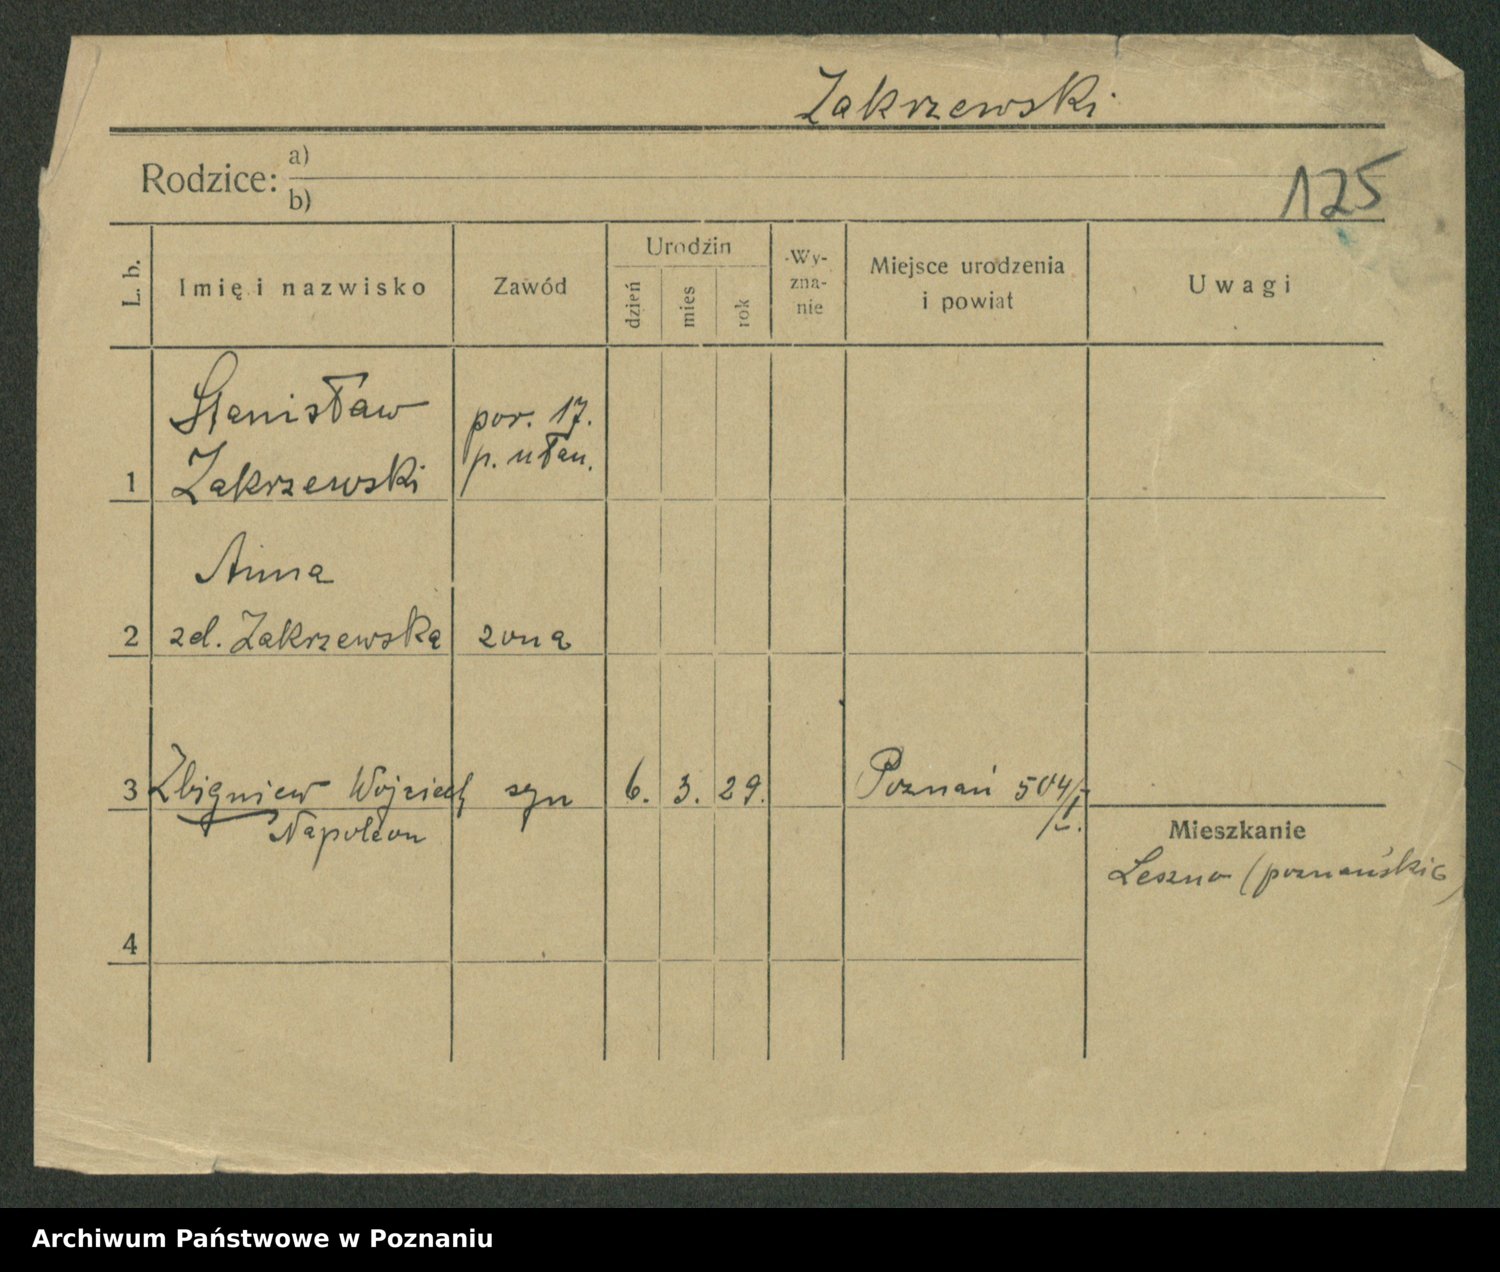 Zakrzewski
Rodzice: a)
b)
125
L. b.
Imię i nazwisko
Zawód
Urodzin
dzień
mies
rok
Wy-
zna-
nie
Miejsce urodzenia
i powiat
Uwagi
Stanisław
Zakrzewski
por. 17.
p. ułan.
1
Anna
2 zd. Zakrzewska żona
3 Zbigniew Wojciech syn 6. 3. 29. Poznań 504/
Napoleon
Mieszkanie
Leszno (poznańskie)
4
Archiwum Państwowe w Poznaniu